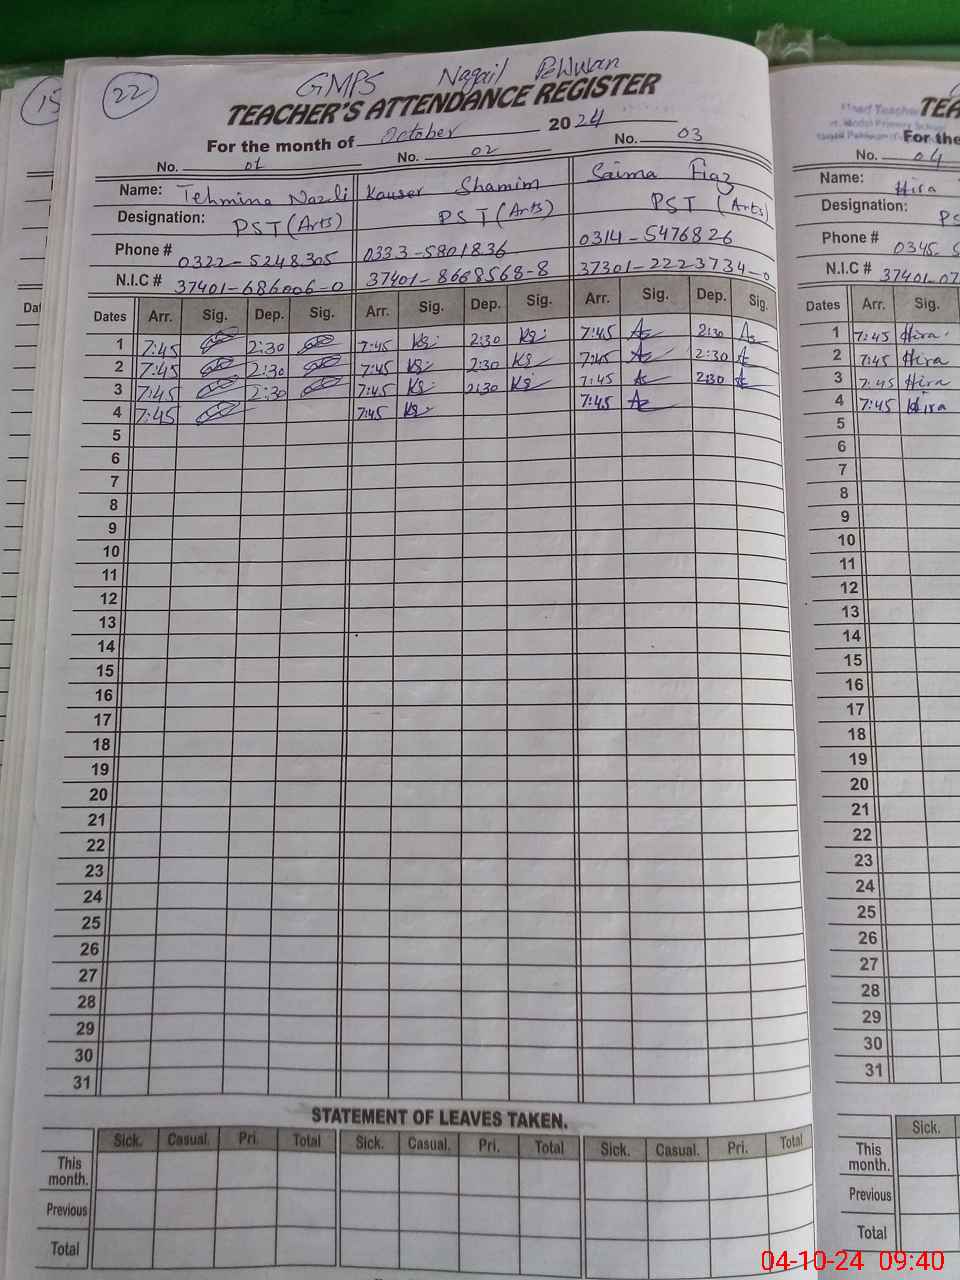 22
GMPS Nagail Pewwan
TEACHER'S ATTENDANCE REGISTER
For the month of October 2024
No. 01 No. 02 No. 03
Name: Tehmina Nazli Kauser Shamim Saima Fiaz
Designation: PST (Arts) PST (Arts) PST (Arts)
Phone # 0322-5248305 0333-5801836 0314-5476826
N.I.C # 37401-686006-0 37401-8668568-8 37301-2223734-0
Dates Arr. Sig. Dep. Sig. Arr. Sig. Dep. Sig. Arr. Sig. Dep. Sig.
1 7:45 2:30 7:45 Ks 2:30 Ks 7:45 2:30
2 7:45 2:30 7:45 Ks 2:30 Ks 7:45 2:30
3 7:45 2:30 7:45 Ks 2:30 Ks 7:45 2:30
4 7:45 7:45 Ks 7:45
5
6
7
8
9
10
11
12
13
14
15
16
17
18
19
20
21
22
23
24
25
26
27
28
29
30
31
STATEMENT OF LEAVES TAKEN.
Sick. Casual. Pri. Total Sick. Casual. Pri. Total Sick. Casual. Pri. Total
This month.
Previous
Total
15
Head Teacher
Model Primary School
TEA
For the
No. 04
Name: Hira
Designation: PS
Phone # 0345-5
N.I.C # 37401-07
Dates Arr. Sig.
1 7:45 Hira
2 7:45 Hira
3 7:45 Hira
4 7:45 Hira
5
6
7
8
9
10
11
12
13
14
15
16
17
18
19
20
21
22
23
24
25
26
27
28
29
30
31
Sick.
This month.
Previous
Total
04-10-24 09:40